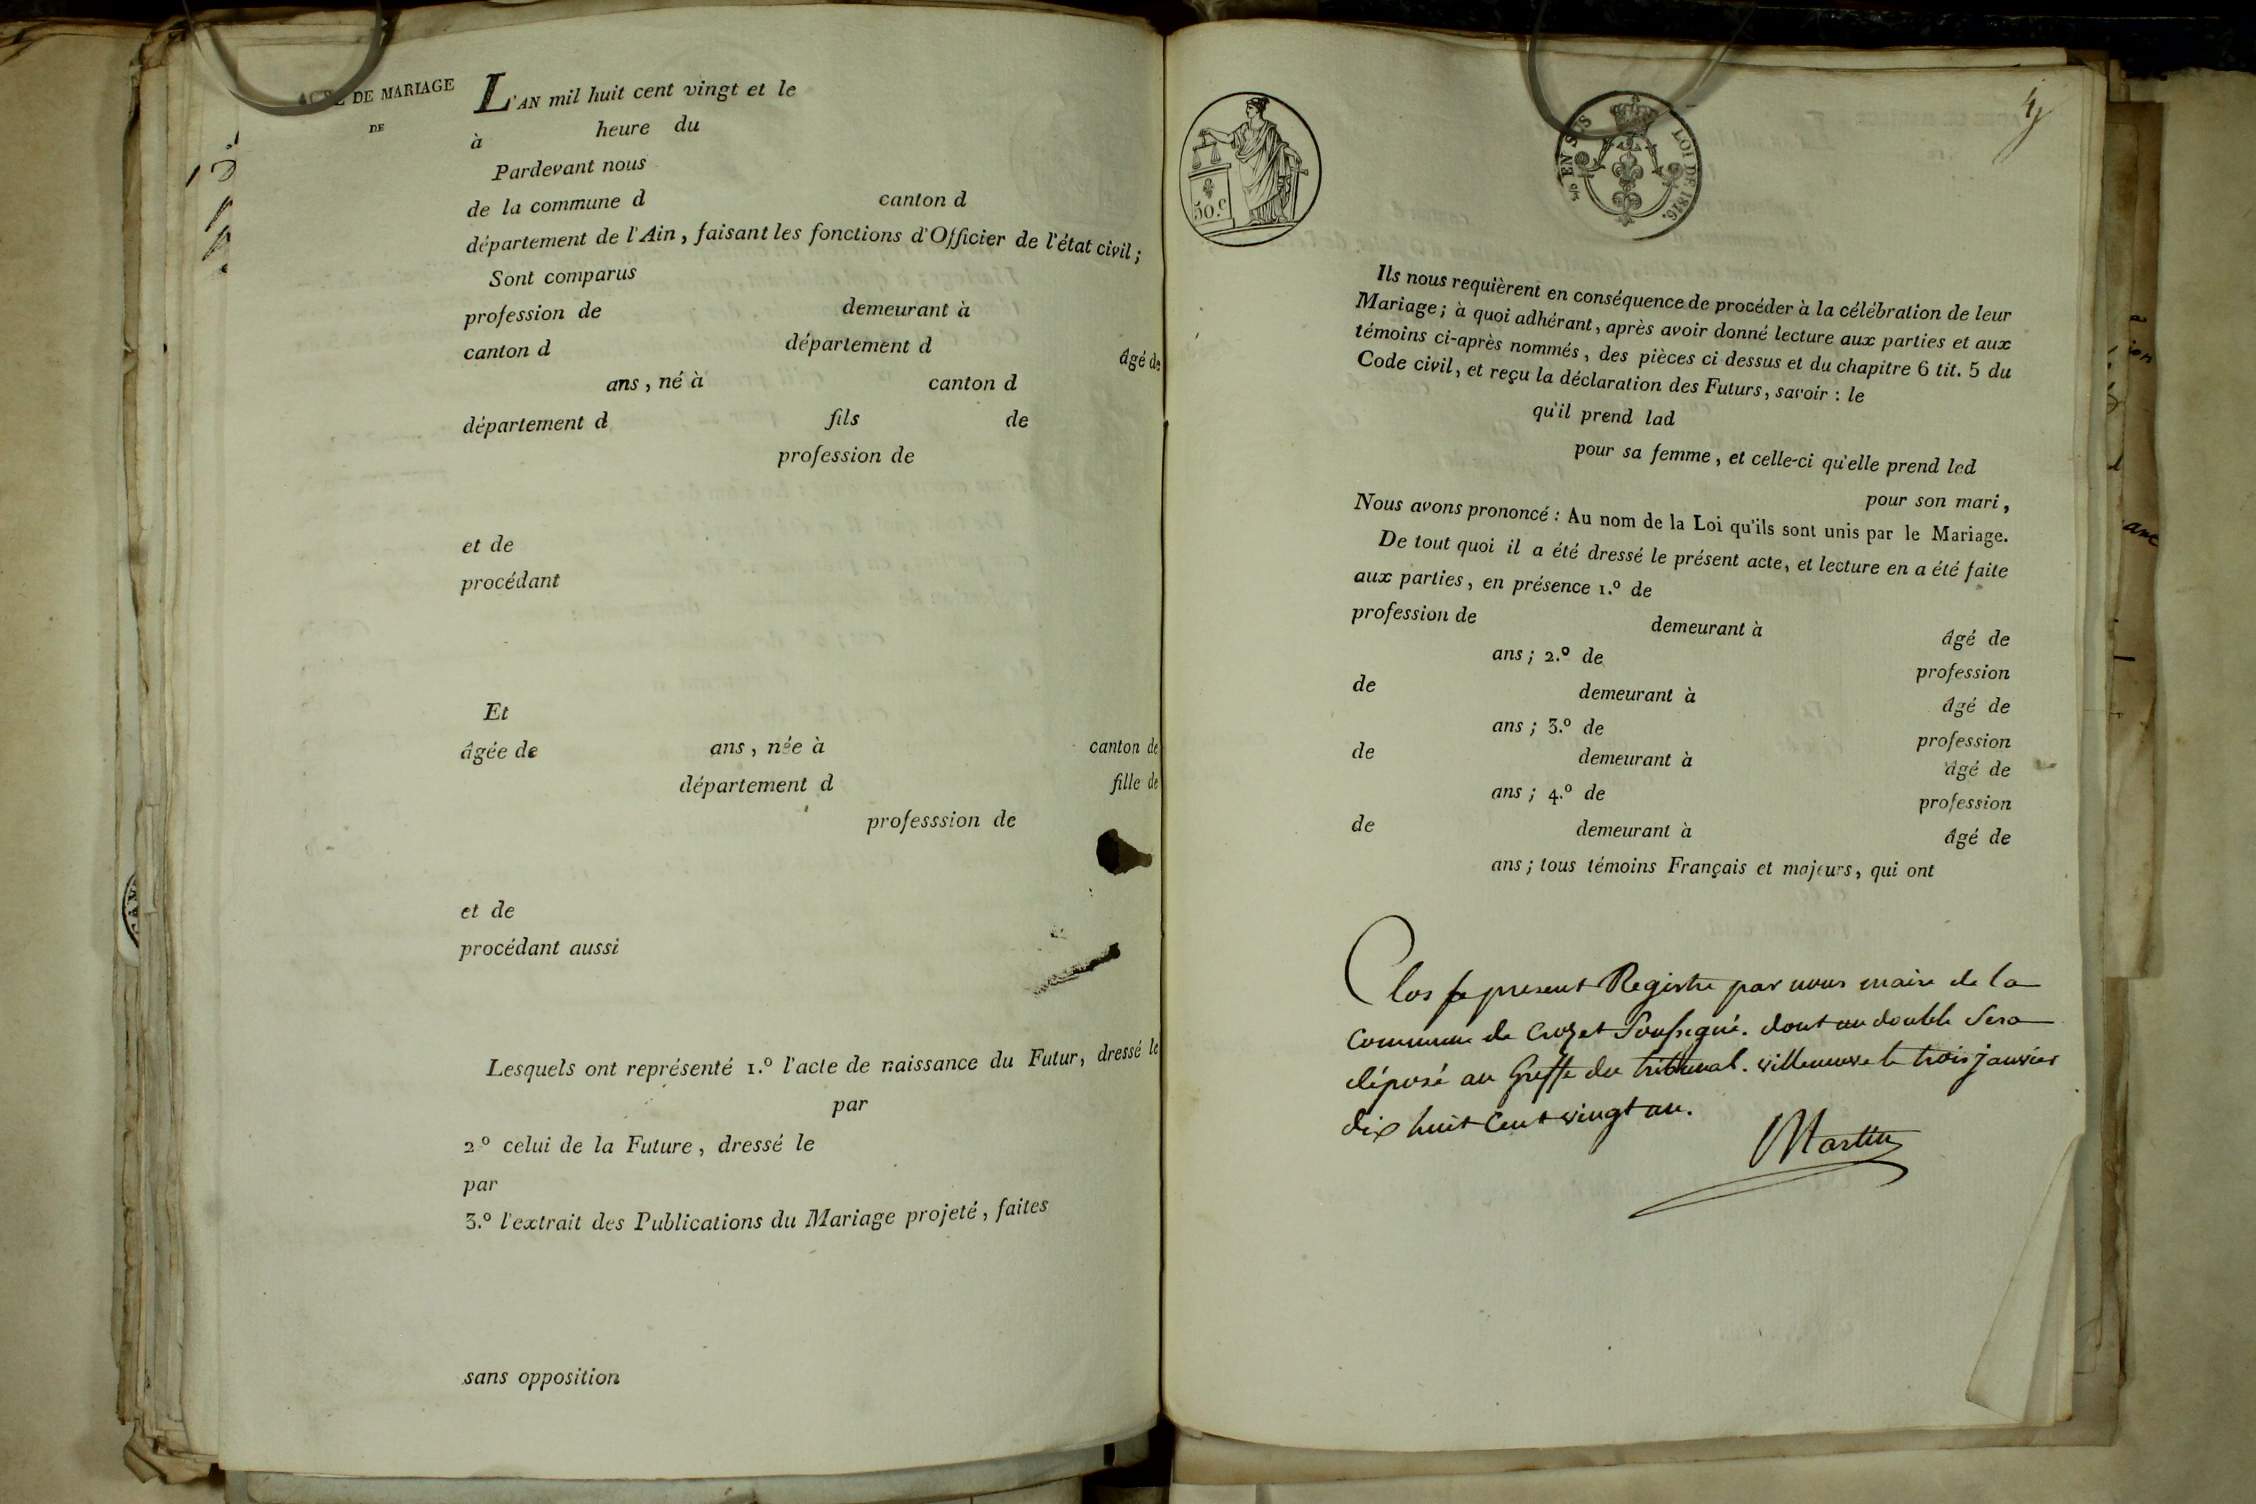 ACTE DE MARIAGE
DE
L'AN mil huit cent vingt et le
à heure du
Pardevant nous
de la commune d canton d
département de l'Ain, faisant les fonctions d'Officier de l'état civil;
Sont comparus
profession de demeurant à
canton d département d âgé de
ans, né à canton d
département d fils de
profession de
et de
procédant
Et
âgée de ans, née à canton de
département d fille de
professsion de
et de
procédant aussi
Lesquels ont représenté 1.º l'acte de naissance du Futur, dressé le
par
2º celui de la Future, dressé le
par
3.º l'extrait des Publications du Mariage projeté, faites
sans opposition
50.c
EN SUS
LOI DE 1816.
Ils nous requièrent en conséquence de procéder à la célébration de leur
Mariage; à quoi adhérant, après avoir donné lecture aux parties et aux
témoins ci-après nommés, des pièces ci dessus et du chapitre 6 tit. 5 du
Code civil, et reçu la déclaration des Futurs, savoir : le
qu'il prend lad
pour sa femme, et celle-ci qu'elle prend led
pour son mari,
Nous avons prononcé : Au nom de la Loi qu'ils sont unis par le Mariage.
De tout quoi il a été dressé le présent acte, et lecture en a été faite
aux parties, en présence 1.º de
profession de demeurant à âgé de
ans; 2.º de profession
de demeurant à âgé de
ans; 3.º de profession
de demeurant à âgé de
ans; 4.º de profession
de demeurant à âgé de
ans; tous témoins Français et majeurs, qui ont
Clos le present Registre par nous maire de la
commune de Crozet Soussigné. dont un double sera
déposé au Greffe du tribunal. villeneuve le trois janvier
dix huit cent vingt un.
Martin